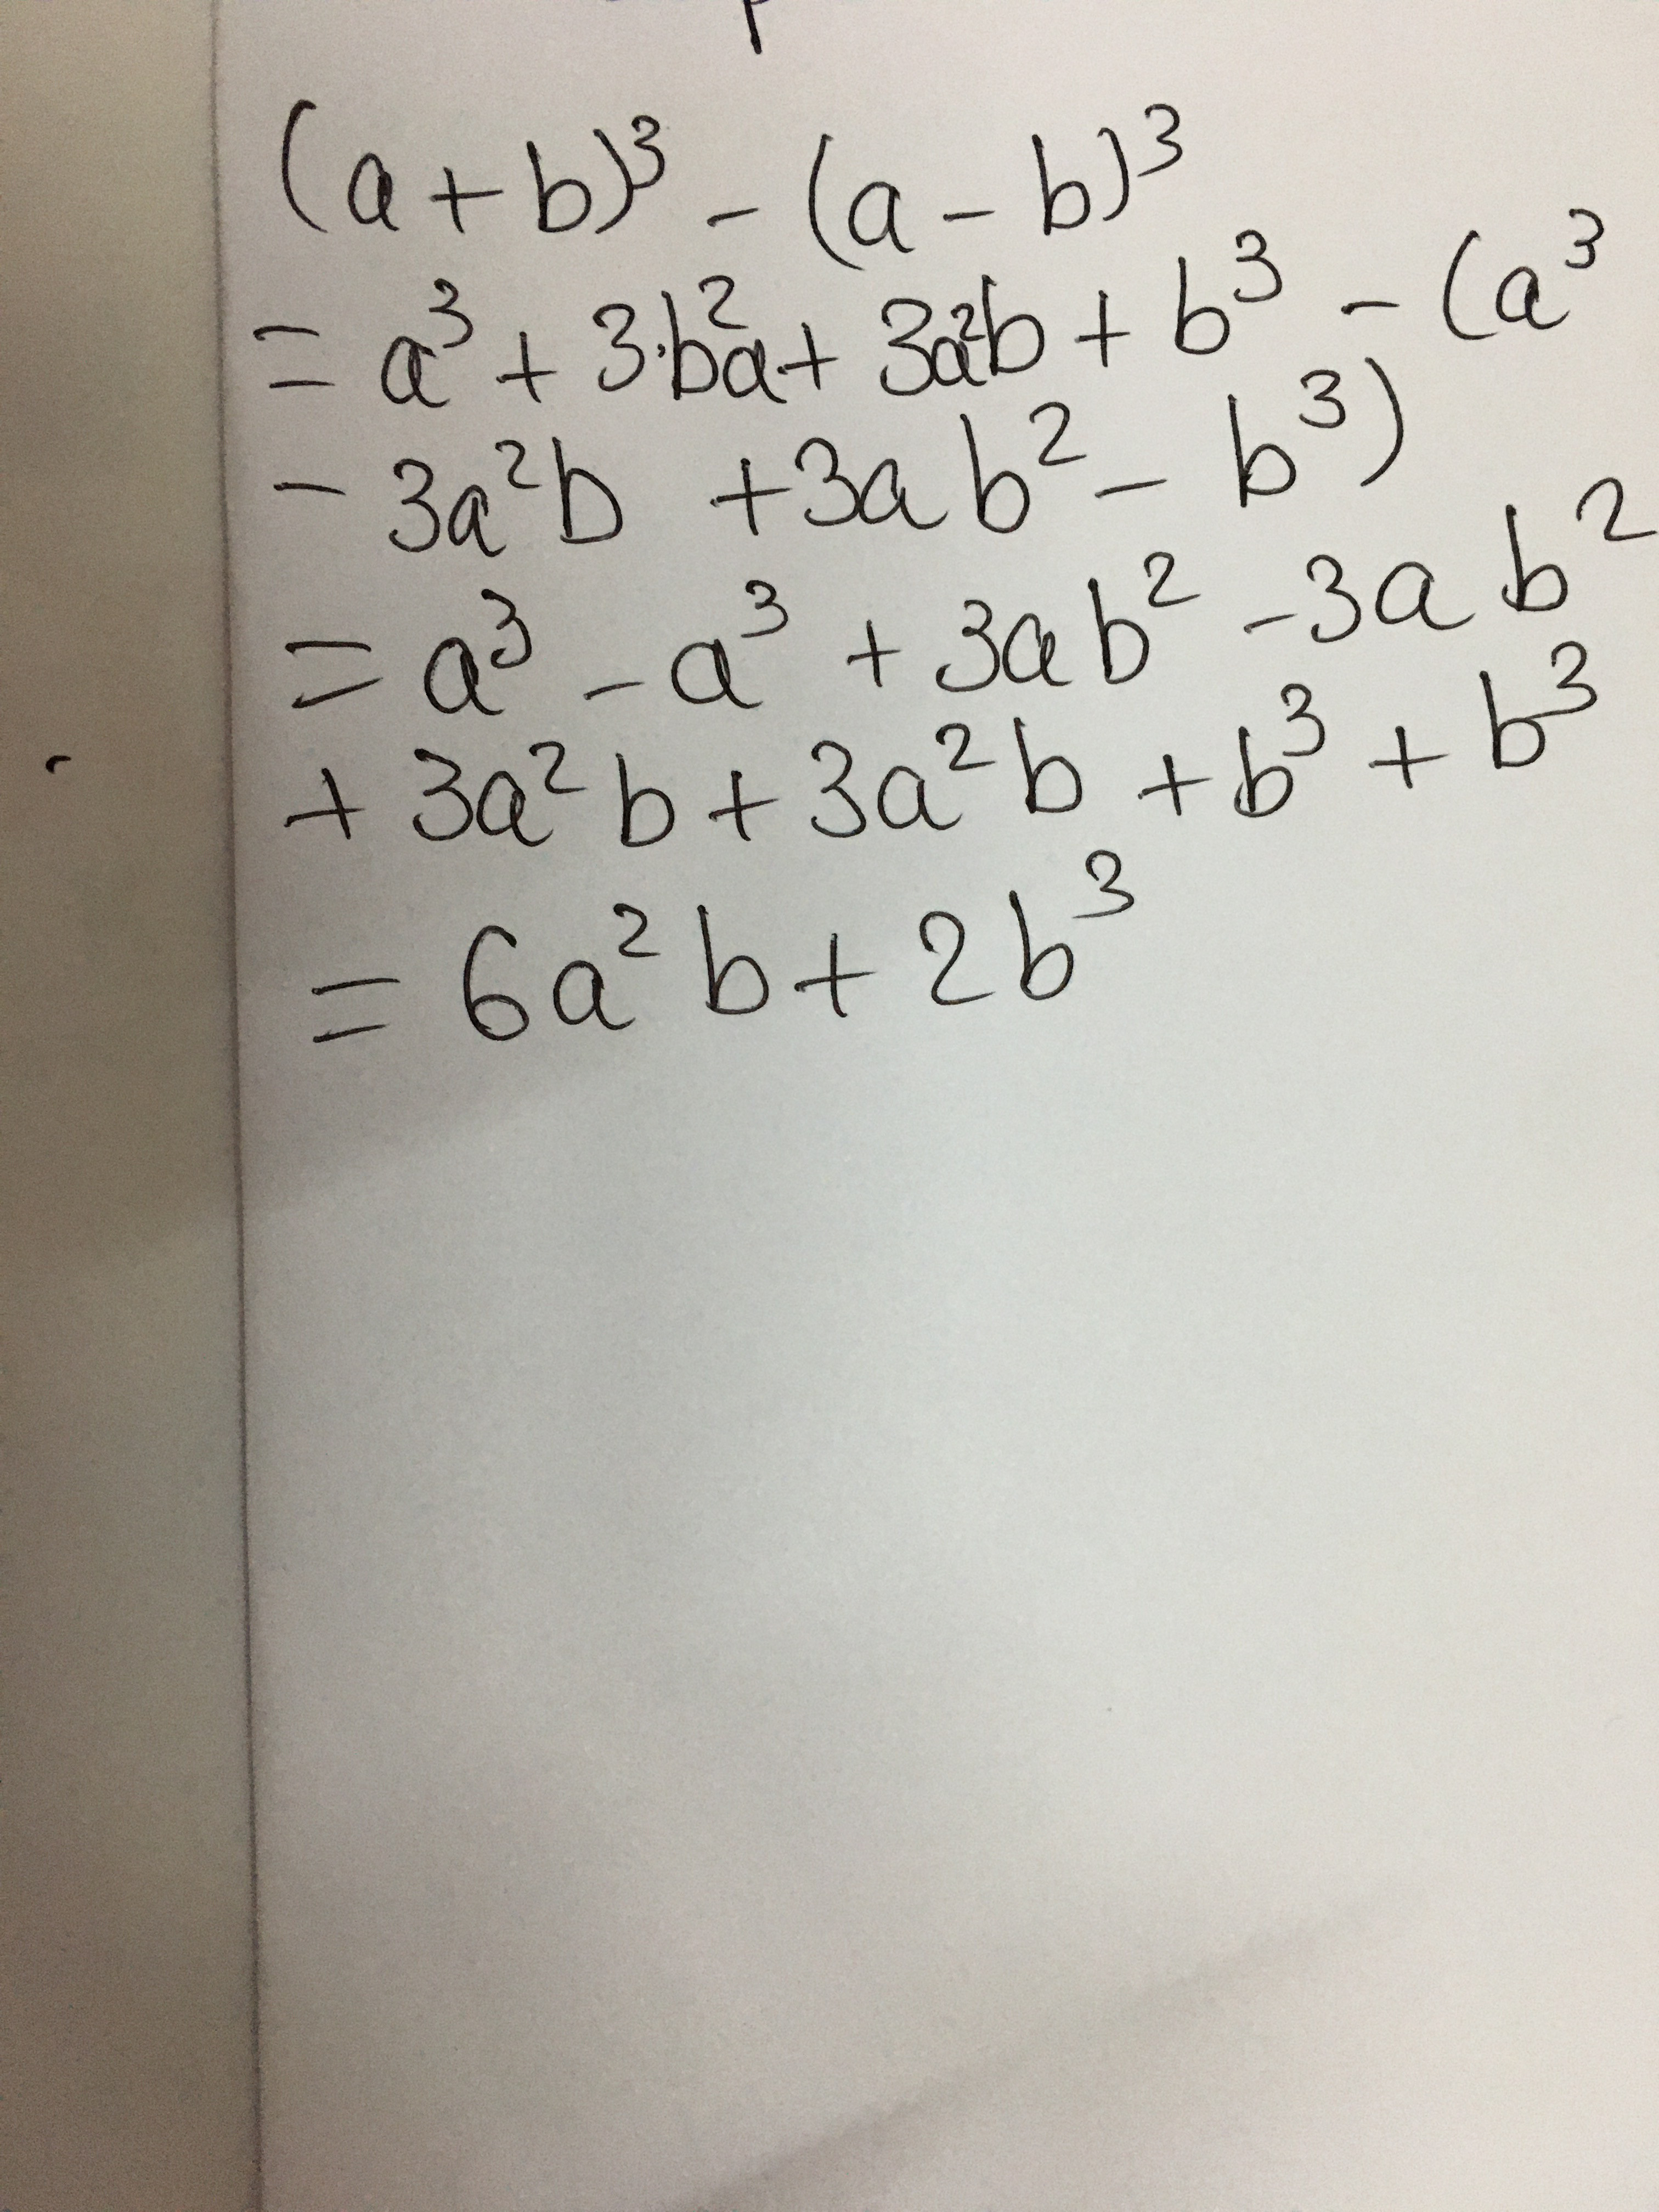 (a+b)³ - (a-b)³
= a³ + 3·b²a + 3a²b + b³ - (a³
- 3a²b + 3ab² - b³)
= a³ - a³ + 3ab² - 3ab²
+ 3a²b + 3a²b + b³ + b³
= 6a²b + 2b³